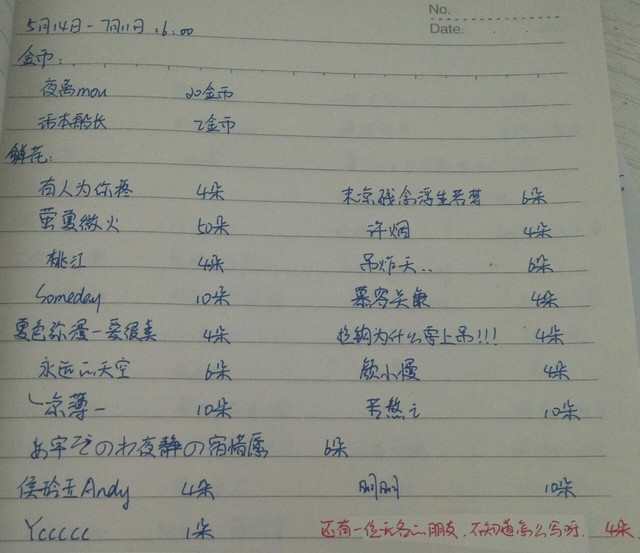 No.
5月14日-7月11日 16:00
Date.
金币:
夜离mou 20金币
话本船长 2金币
鲜花:
有人为你疼 4朵 末京残念浮生若梦 6朵
萤夏微火 50朵 许烟 4朵
桃江 4朵 吊炸天.. 6朵
Someday 10朵 慕容关康 4朵
夏色弥漫一爱很美 4朵 为什么要上吊!!! 4朵
永远的天空 6朵 颜小慢 4朵
凉薄一 10朵 苦熬 10朵
の夜静の宿情愿 6朵
侯玲玉Andy 4朵 刚刚 10朵
Yccccc 1朵 还有一位无名的朋友.不知道怎么写呀. 4朵